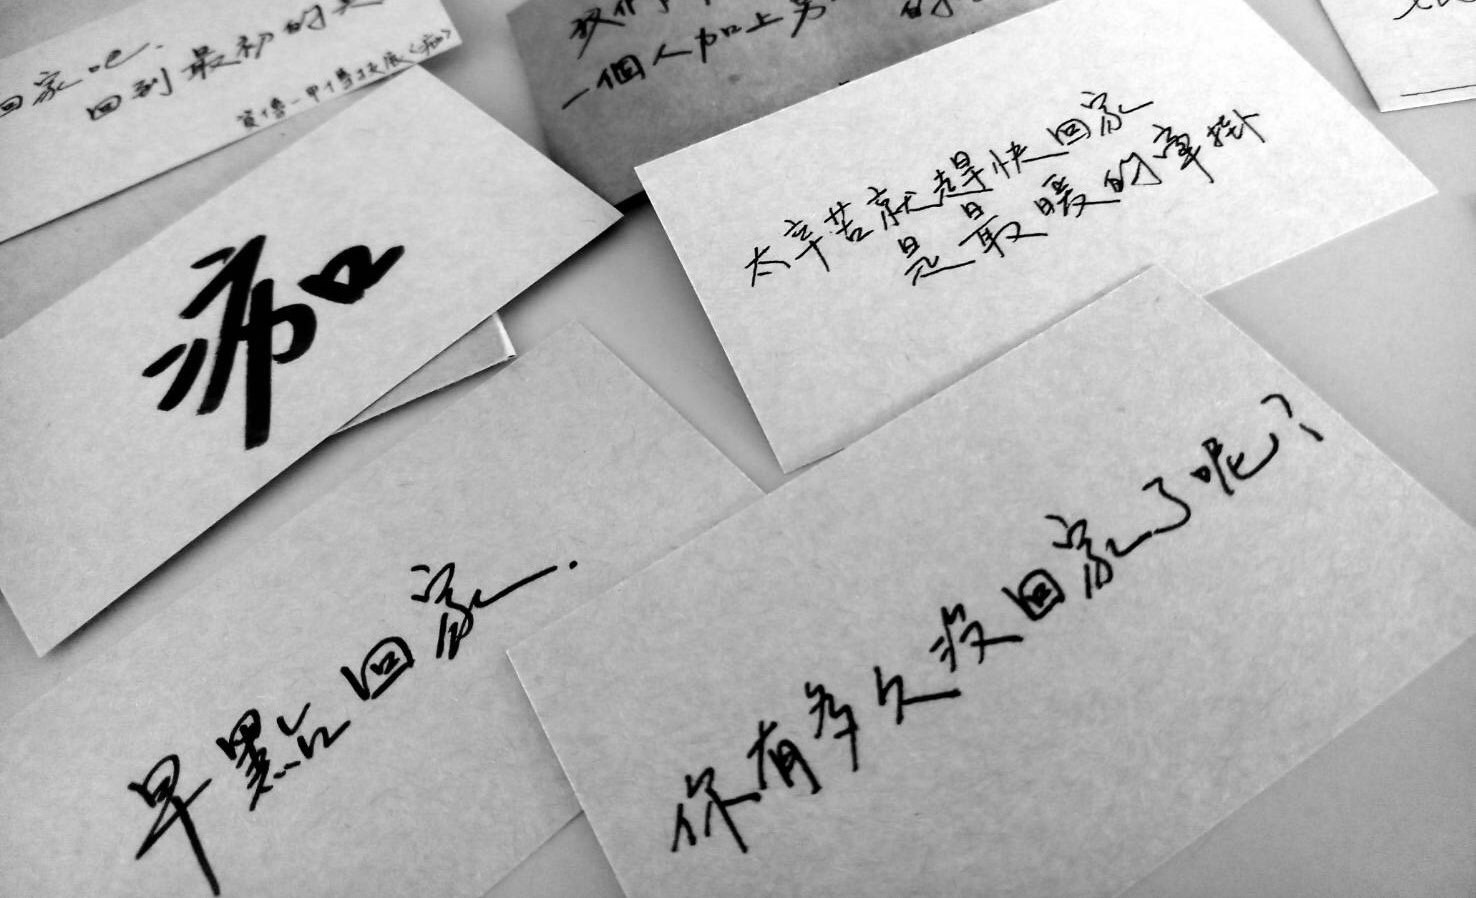 回家吧.
回到最初的
資傳一甲傳技展《痂》
一個人加上另
的
太辛苦就趕快回家
是最暖的牽掛
痂
早點回家.
你有多久沒回家了呢?